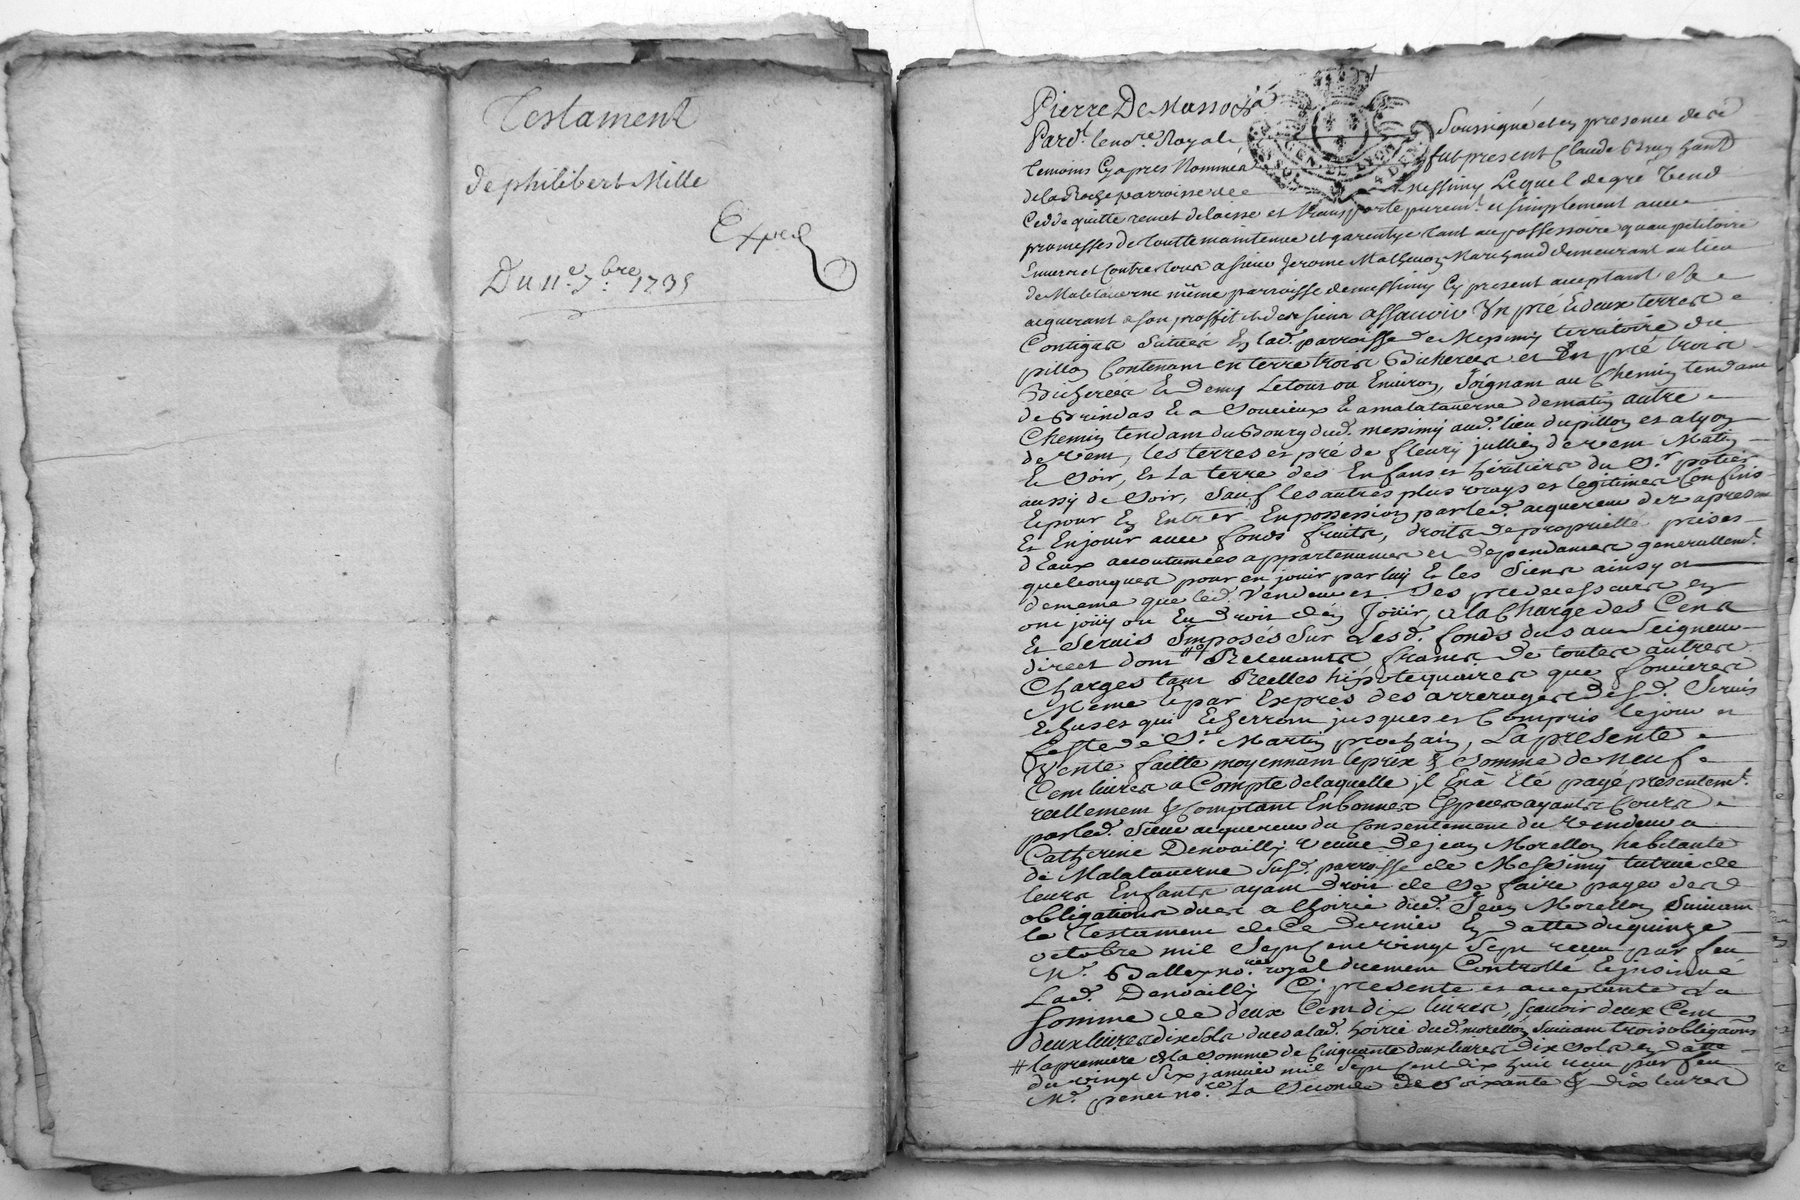 Testament
de philibert Mille
Exped
Du 11.e 7.bre 1735
Pierre De Masso &a
Pard.t le no.re Royal soussigné et en presence de
temoins Cy apres Nommés fut present Claude
de la Roche parroisse de messimy Lequel de gré Vend
Cedde quitte remet delaisse et transporte purem.t et simplement avec
promesses de toutte maintenue et garentye tant au possessoire qu'au petitoire
Envers et Contre tous a sieur Jerome Mathevon Marchand demeurant au lieu
de Malataverne même parroisse de messimy Cy present acceptant et
acquerant a son proffit et des siens assavoir Un pré & deux terres
Contigus situés En lad. parroisse de Messimy territoire du
pillon Contenant en terre trois Bicherées et En pré trois
Bicherées & Demy Le tout ou Environ, Joignant au Chemin tendant
de Brindas & a Soucieux & a malataverne de matin autre
Chemin tendant du Bourg dud. messimy aud. lieu du pillon et a lyon
de vent, les terres et pré de fleury jullien de vent Matin
& Soir, Et La terre des Enfans et héritiers du S.r potier
aussy de Soir, Sauf les autres plus vrays et legitimes Confins
& pour En Entrer En possession par led. acquereur dez a present
Et En jouir avec fonds fruits, droits de proprietté prises
d'Eaux accoutumées appartenances et dependances generallem.t
quelconques pour en jouir par luy & les Siens ainsy et
de meme que led. Vendeur et Ses predecesseurs en
ont jouy ou Eu Droit d'en Jouir, a la Charge des Cens
Et Servis Imposés Sur Lesd. fonds dus au Seigneur
direct dont # Relevants francs De toutes autres
Charges tant Reelles hipotequaires que foncieres
Meme & par Exprès des arrerages desd. Servis
Echus et qui Echerront jusques et Compris le jour et
feste de S.t Martin prochain, La presente
Vente faitte moyennant le prix & Somme de Neuf
Cent livres a Compte de laquelle jl En à Eté payé presentem.t
reellement & Comptant En bonnes Espèces ayants Cours
par led. Sieur acquereur du Consentement du Vendeur a
Catherine Denoailly veuve de jean Morellon habitante
de Malataverne Susd. parroisse de Messimy tutrice de
leurs Enfants ayant Droit de Se faire payer des
obligations dues a l'hoirie dud. Jean Morellon Suivant
le Testament de Ce dernier En datte du quinze
octobre mil Sept Cent vingt Sept reçu par feu
M.e Ballex no.re royal duement Controllé & jnsinué
Lad. Denoailly Cy presente et acceptante La
Somme de deux Cent dix livres, Scavoir deux Cent
deux livres dix sols dues a lad. hoirie dud. morellon Suivant trois obligaõns
# la premiere de la Somme de Cinquante deux livres dix Sols en datte
du vingt Six janvier mil Sept Cent dix huit reçu par feu
M.e penet no.re La Seconde de Soixante & dix livres